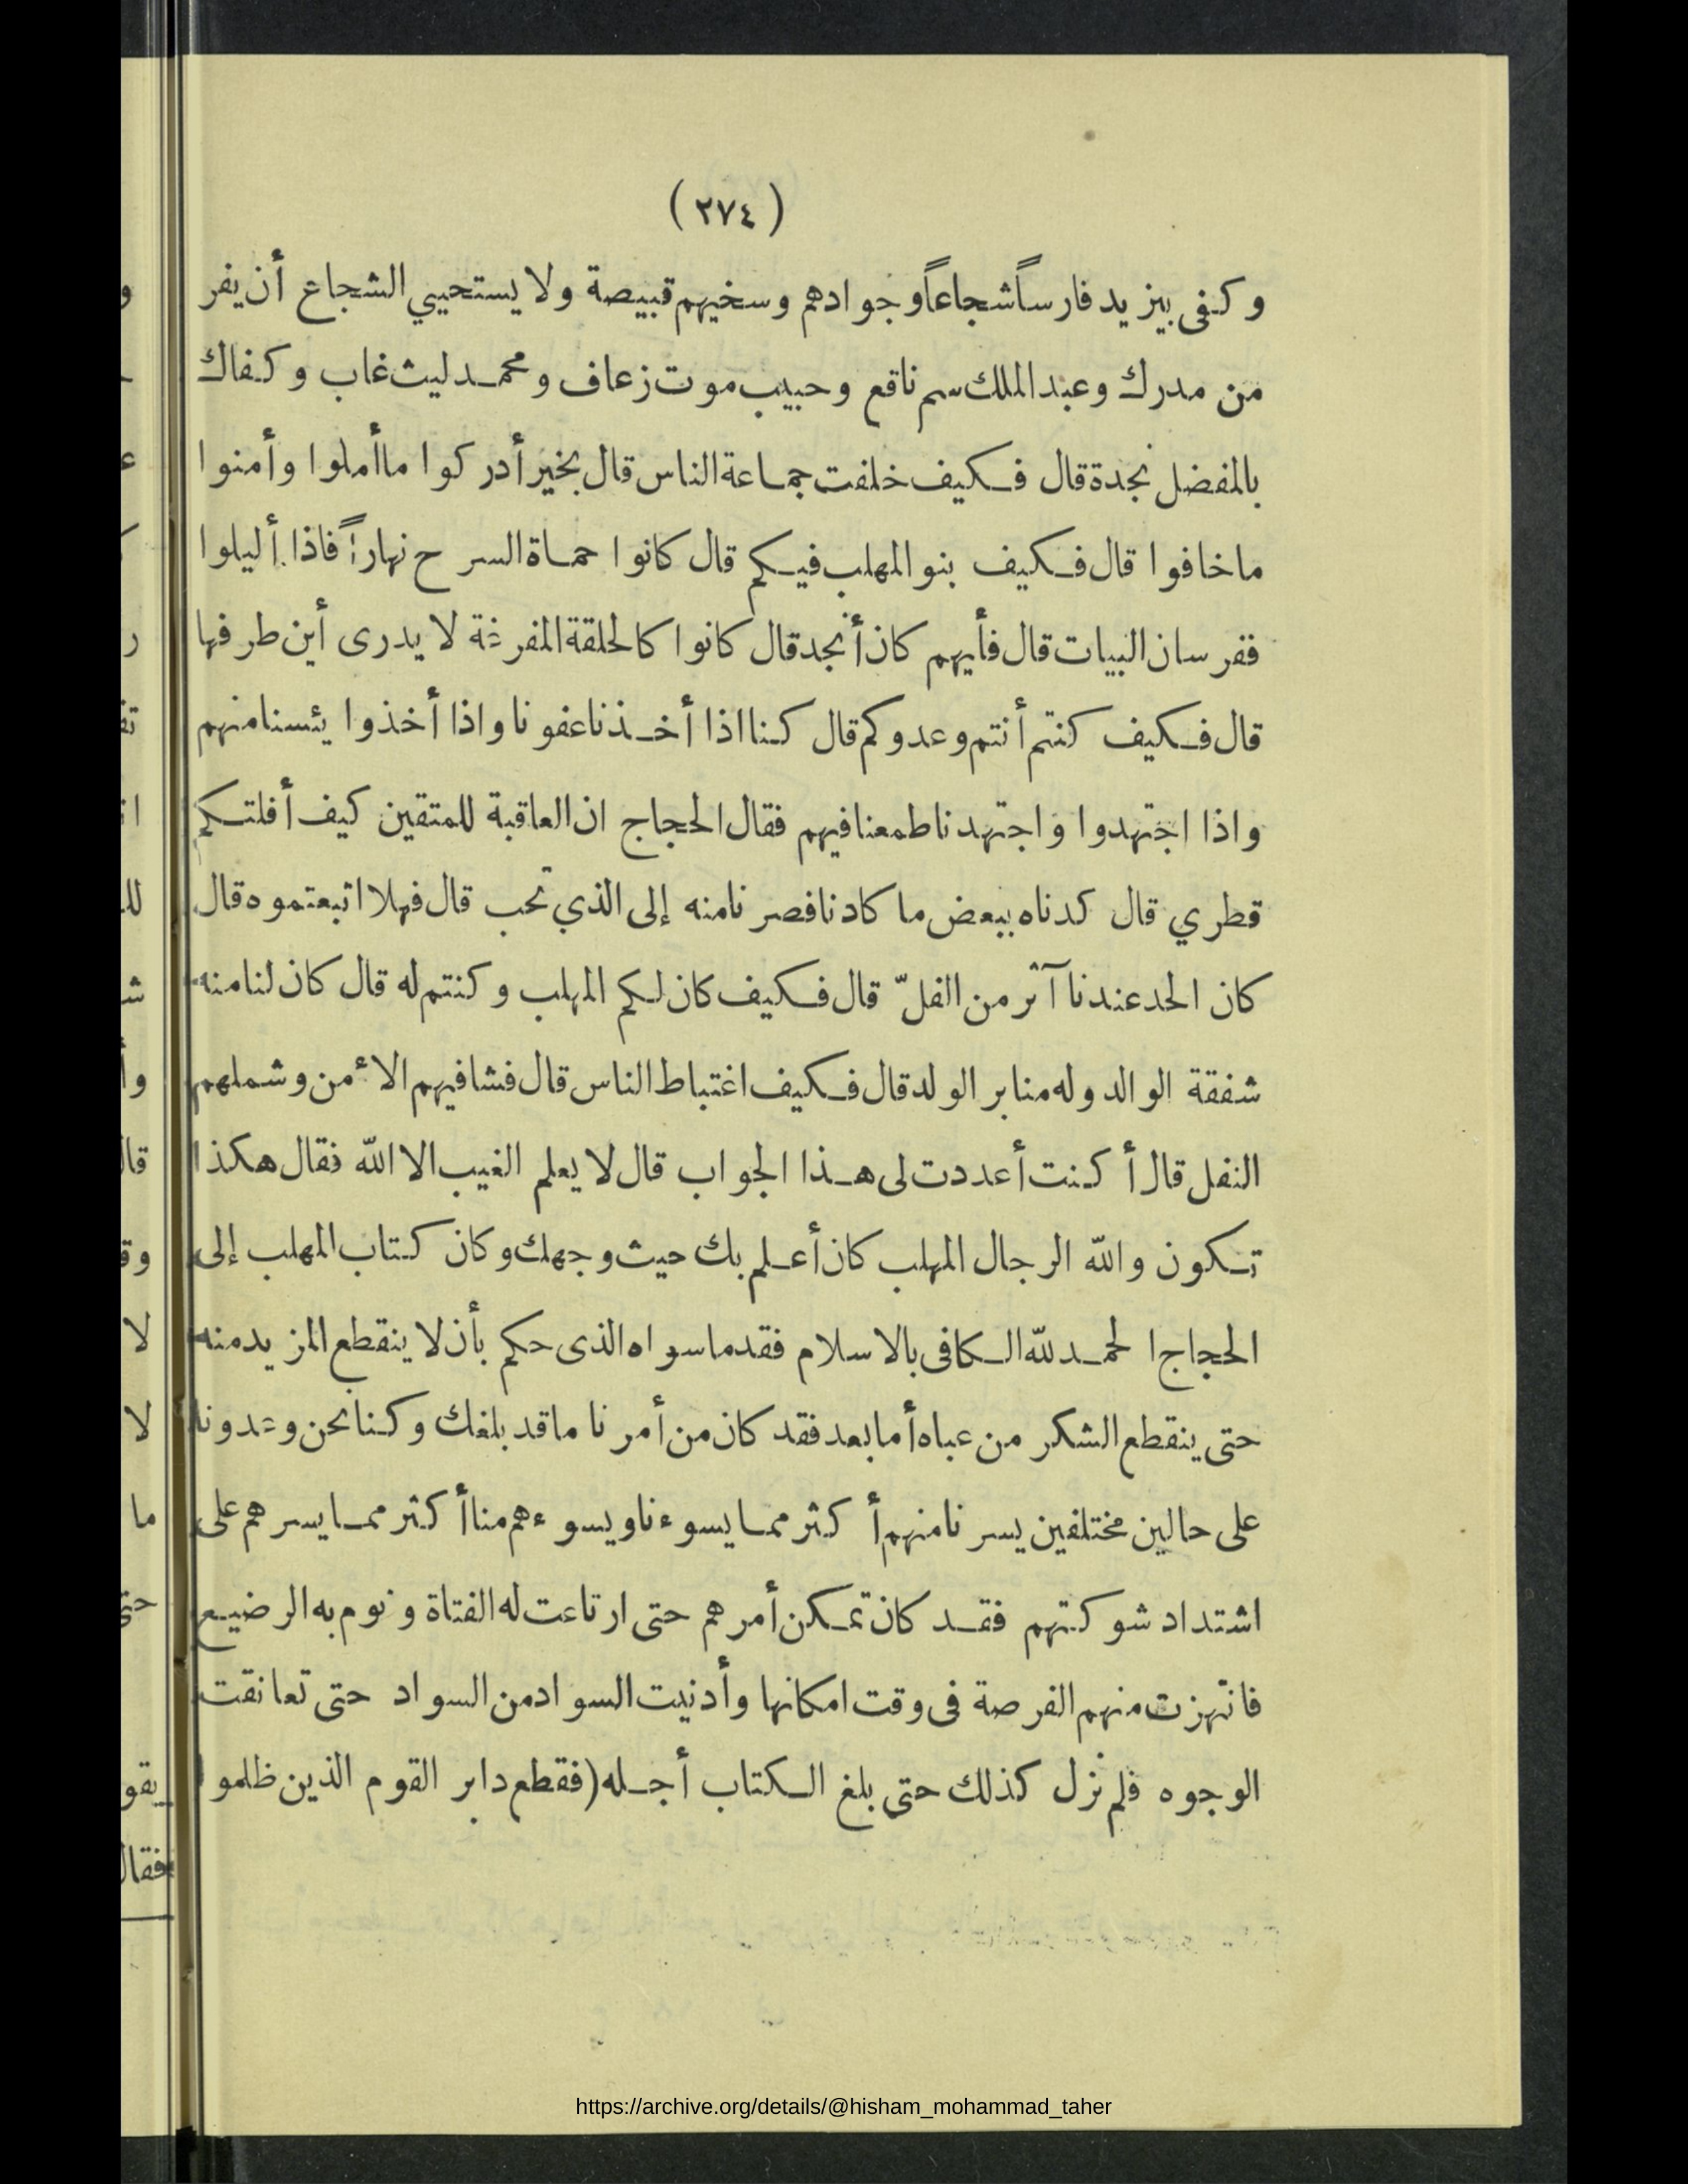 (٢٧٤)
وكفى بيزيد فارساً شجاعاً وجوادهم وسخيهم قبيصة ولا يستحيي الشجاع أن يفر
من مدرك وعبد الملك سم ناقع وحبيب موت زعاف ومحمد ليث غاب وكفاك
بالمفضل نجدة قال فكيف خلفت جماعة الناس قال بخير أدركوا ما أملوا وأمنوا
ما خافوا قال فكيف بنو المهلب فيكم قال كانوا حماة السرح نهاراً فاذا أليلوا
ففرسان البيات قال فأيهم كان أنجد قال كانوا كالحلقة المفرغة لا يدرى أين طرفها
قال فكيف كنتم أنتم وعدوكم قال كنا اذا أخذنا عفونا واذا أخذوا يئسنا منهم
واذا اجتهدوا واجتهدنا طمعنا فيهم فقال الحجاج ان العاقبة للمتقين كيف أفلتكم
قطري قال كدناه ببعض ما كادنا فصرنا منه إلى الذي نحب قال فهلا اتبعتموه قال
كان الحد عندنا آثر من الفلّ قال فكيف كان لكم المهلب وكنتم له قال كان لنا منه
شفقة الوالد وله منا بر الولد قال فكيف اغتباط الناس قال فشا فيهم الأمن وشملهم
النفل قال أ كنت أعددت لى هذا الجواب قال لا يعلم الغيب الا الله فقال هكذا
تكون والله الرجال المهلب كان أعلم بك حيث وجهك وكان كتاب المهلب إلى
الحجاج الحمد لله الكافى بالاسلام فقد ما سواه الذى حكم بأن لا ينقطع المزيد منه
حتى ينقطع الشكر من عباه أما بعد فقد كان من أمرنا ما قد بلغك وكنا نحن وعدونا
على حالين مختلفين يسرنا منهم أكثر مما يسوءنا ويسوءهم منا أكثر مما يسرهم على
اشتداد شوكتهم فقد كان تمكن أمرهم حتى ارتاعت له الفتاة ونوم به الرضيع
فانتهزت منهم الفرصة فى وقت امكانها وأدنيت السواد من السواد حتى تعانقت
الوجوه فلم نزل كذلك حتى بلغ الكتاب أجله (فقطع دابر القوم الذين ظلموا
https://archive.org/details/@hisham_mohammad_taher